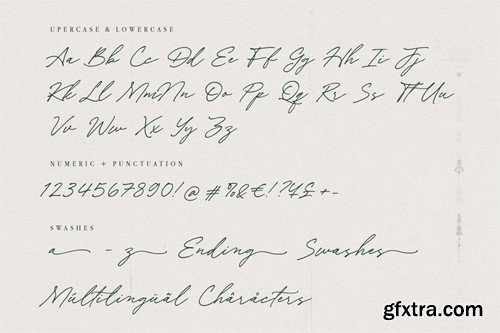 UPERCASE & LOWERCASE
Aa Bb Cc Dd Ee Ff Gg Hh Ii Jj
Kk Ll Mm Nn Oo Pp Qq Rr Ss Tt Uu
Vv Ww Xx Yy Zz
NUMERIC + PUNCTUATION
1234567890!@#%&€!?¥£+-
SWASHES
a - z Ending Swashes
Múltilingüãl Chärácters
gfxtra.com